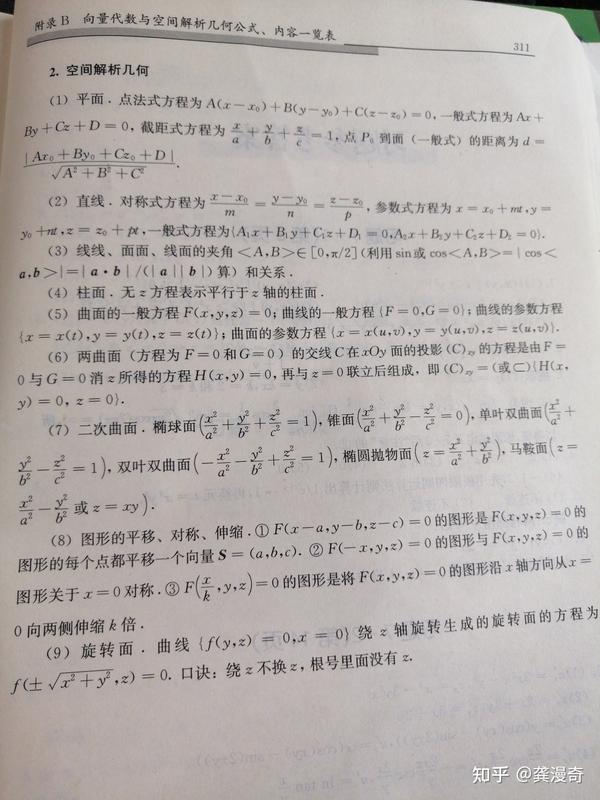 附录B 向量代数与空间解析几何公式、内容一览表
311
2. 空间解析几何
(1) 平面. 点法式方程为 A(x−x₀)+B(y−y₀)+C(z−z₀)=0, 一般式方程为 Ax+
By+Cz+D=0, 截距式方程为 x/a + y/b + z/c = 1, 点 P₀ 到面 (一般式) 的距离为 d=
|Ax₀+By₀+Cz₀+D| / √(A²+B²+C²).
(2) 直线. 对称式方程为 (x−x₀)/m = (y−y₀)/n = (z−z₀)/p, 参数式方程为 x=x₀+mt, y=
y₀+nt, z=z₀+pt, 一般式方程为{A₁x+B₁y+C₁z+D₁=0, A₂x+B₂y+C₂z+D₂=0}.
(3) 线线、面面、线面的夹角<A,B>∈[0,π/2](利用sin或cos<A,B>=|cos<
a,b>|=|a·b|/(|a||b|)算) 和关系.
(4) 柱面. 无z方程表示平行于z轴的柱面.
(5) 曲面的一般方程 F(x,y,z)=0; 曲线的一般方程 {F=0,G=0}; 曲线的参数方程
{x=x(t),y=y(t),z=z(t)}; 曲面的参数方程 {x=x(u,v),y=y(u,v),z=z(u,v)}.
(6) 两曲面 (方程为F=0和G=0) 的交线C在xOy面的投影(C)ₓᵧ的方程是由F=
0与G=0消z所得的方程H(x,y)=0, 再与z=0联立后组成, 即(C)ₓᵧ=(或⊂){H(x,
y)=0, z=0}.
(7) 二次曲面. 椭球面(x²/a²+y²/b²+z²/c²=1), 锥面(x²/a²+y²/b²−z²/c²=0), 单叶双曲面(x²/a²+
y²/b²−z²/c²=1), 双叶双曲面(−x²/a²−y²/b²+z²/c²=1), 椭圆抛物面(z=x²/a²+y²/b²), 马鞍面(z=
x²/a²−y²/b² 或 z=xy).
(8) 图形的平移、对称、伸缩. ① F(x−a,y−b,z−c)=0的图形是F(x,y,z)=0的
图形的每个点都平移一个向量 S=(a,b,c). ② F(−x,y,z)=0的图形与F(x,y,z)=0的
图形关于x=0对称. ③ F(x/k,y,z)=0的图形是将F(x,y,z)=0的图形沿x轴方向从x=
0向两侧伸缩k倍.
(9) 旋转面. 曲线{f(y,z)=0,x=0}绕z轴旋转生成的旋转面的方程为
f(±√(x²+y²),z)=0. 口诀: 绕z不换z, 根号里面没有z.
知乎 @龚漫奇